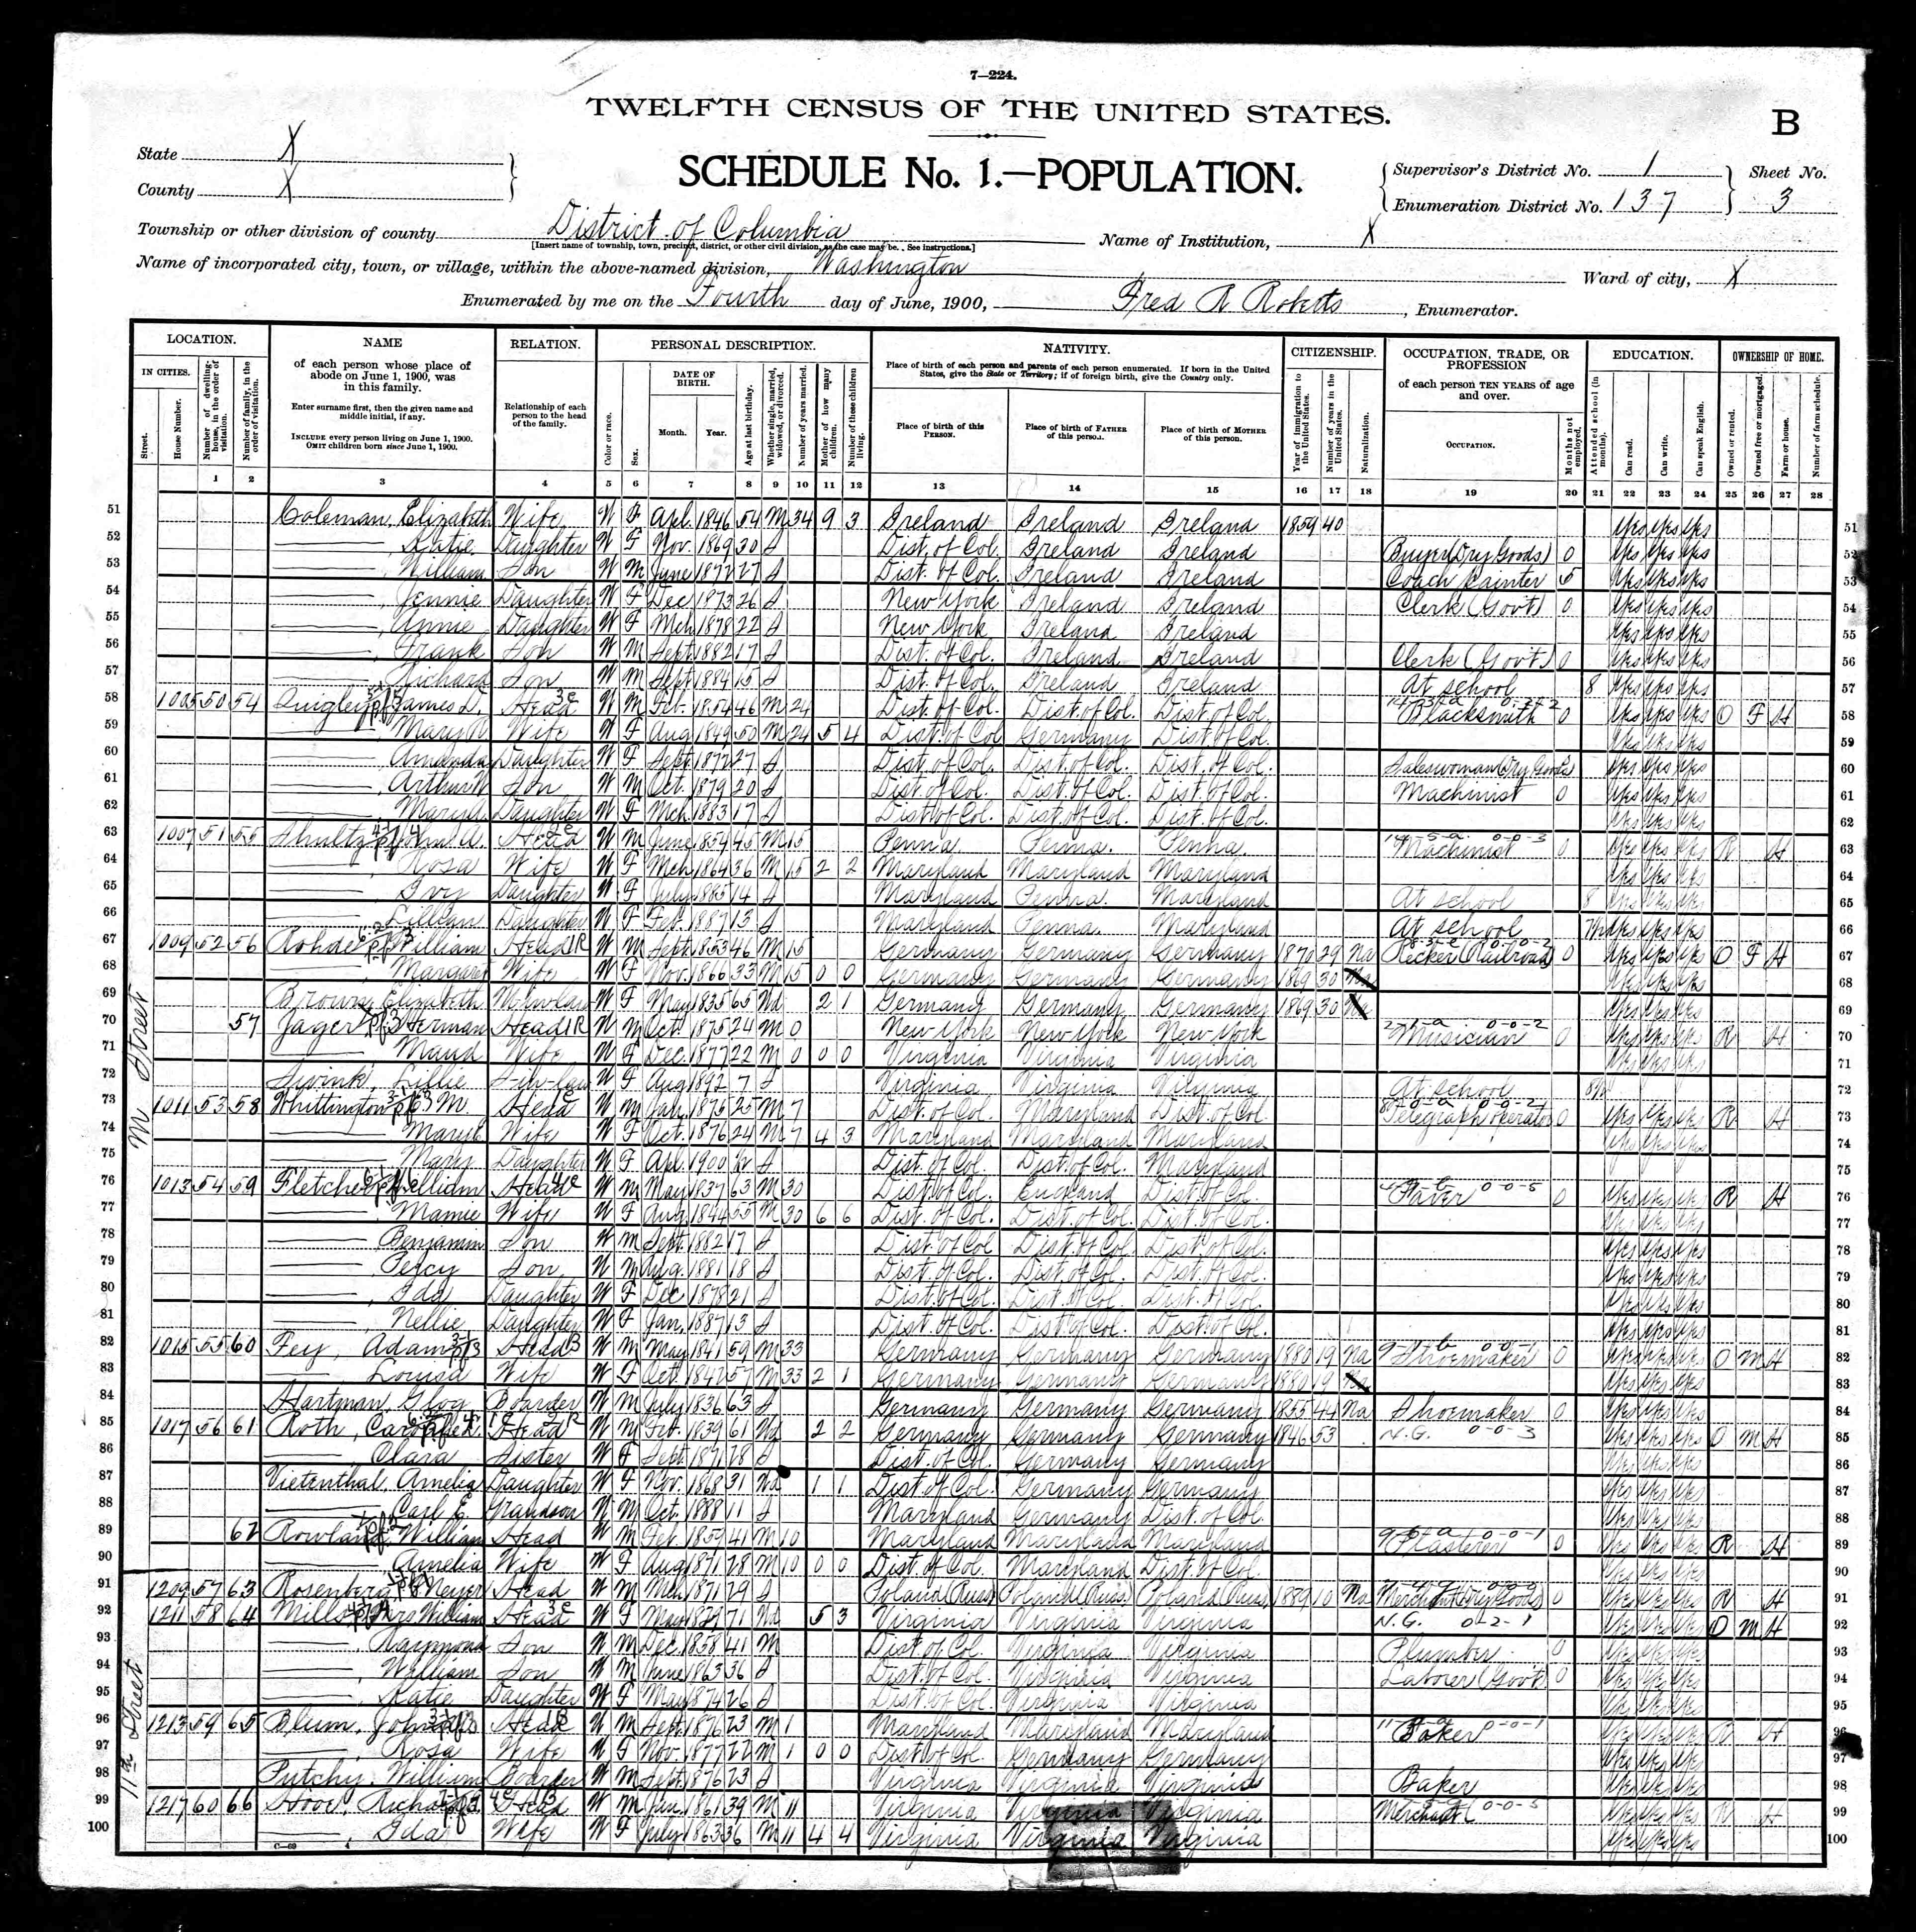 7—224.
TWELFTH CENSUS OF THE UNITED STATES.
B
State X
SCHEDULE No. 1.—POPULATION.
Supervisor's District No. 1 Sheet No.
County X
Enumeration District No. 137 3
Township or other division of county District of Columbia Name of Institution, X
[Insert name of township, town, precinct, district, or other civil division, as the case may be. See instructions.]
Name of incorporated city, town, or village, within the above-named division, Washington Ward of city, X
Enumerated by me on the Fourth day of June, 1900, Fred R Roberts, Enumerator.
LOCATION. NAME RELATION. PERSONAL DESCRIPTION. NATIVITY. CITIZENSHIP. OCCUPATION, TRADE, OR PROFESSION EDUCATION. OWNERSHIP OF HOME.
IN CITIES. Street. House Number. Number of dwelling-house, in the order of visitation. Number of family, in the order of visitation.
of each person whose place of abode on June 1, 1900, was in this family.
Enter surname first, then the given name and middle initial, if any.
INCLUDE every person living on June 1, 1900. OMIT children born since June 1, 1900.
Relationship of each person to the head of the family.
Color or race. Sex. DATE OF BIRTH. Month. Year. Age at last birthday. Whether single, married, widowed, or divorced. Number of years married. Mother of how many children. Number of these children living.
Place of birth of each person and parents of each person enumerated. If born in the United States, give the State or Territory; if of foreign birth, give the Country only.
Place of birth of this PERSON. Place of birth of FATHER of this person. Place of birth of MOTHER of this person.
Year of immigration to the United States. Number of years in the United States. Naturalization.
of each person TEN YEARS of age and over. OCCUPATION. Months not employed.
Attended school (in months). Can read. Can write. Can speak English.
Owned or rented. Owned free or mortgaged. Farm or house. Number of farm schedule.
1 2 3 4 5 6 7 8 9 10 11 12 13 14 15 16 17 18 19 20 21 22 23 24 25 26 27 28
51 Coleman, Elizabeth Wife W F Apl. 1846 54 M 34 9 3 Ireland Ireland Ireland 1859 40 yes yes yes 51
52 Katie Daughter W F Nov. 1869 30 S Dist. of Col. Ireland Ireland Buyer (Dry Goods) 0 yes yes yes 52
53 William Son W M June 1872 27 S Dist. of Col. Ireland Ireland Coach Painter 5 yes yes yes 53
54 Jennie Daughter W F Dec 1873 26 S New York Ireland Ireland Clerk (Gov't) 0 yes yes yes 54
55 Annie Daughter W F Mch 1878 22 S New York Ireland Ireland yes yes yes 55
56 Frank Son W M Sept 1882 17 S Dist. of Col. Ireland Ireland Clerk (Gov't) 0 yes yes yes 56
57 Richard Son W M Sept 1884 15 S Dist. of Col. Ireland Ireland At school 8 yes yes yes 57
58 1005 50 54 Quigley, James D. Head W M Feb. 1854 46 M 24 Dist. of Col. Dist. of Col. Dist. of Col. Blacksmith 0 yes yes yes O F H 58
59 Mary R Wife W F Aug 1849 50 M 24 5 4 Dist. of Col Germany Dist. of Col. yes yes yes 59
60 Amanda Daughter W F Sept 1872 27 S Dist. of Col. Dist. of Col. Dist. of Col. Saleswoman (Dry Goods) yes yes yes 60
61 Arthur W Son W M Oct. 1879 20 S Dist. of Col. Dist. of Col. Dist. of Col. Machinist 0 yes yes yes 61
62 Mary A. Daughter W F Mch 1883 17 S Dist of Col. Dist. of Col. Dist. of Col. yes yes yes 62
63 1007 51 55 Shultz, John A. Head W M June 1854 45 M 15 Penna Penna. Penna. Machinist 0 yes yes yes R H 63
64 Rosa Wife W F Mch 1864 36 M 15 2 2 Maryland Maryland Maryland yes yes yes 64
65 Ivy Daughter W F July 1885 14 S Maryland Penna. Maryland At school 8 yes yes yes 65
66 Lillian Daughter W F Feb. 1887 13 S Maryland Penna. Maryland At school yes yes yes 66
67 1009 52 56 Rohde, William Head W M Sept. 1853 46 M 15 Germany Germany Germany 1870 29 Na (Railroad) 0 yes yes yes O F H 67
68 Margaret Wife W F Nov. 1866 33 M 15 0 0 Germany Germany Germany 1869 30 yes yes yes 68
69 Elizabeth W F May 1835 65 Wd 2 1 Germany Germany Germany 1869 30 yes yes yes 69
70 57 Jager, Herman Head W M Oct. 1875 24 M 0 New York New York New York Musician 0 yes yes yes R H 70
71 Maud Wife W F Dec. 1877 22 M 0 0 0 Virginia Virginia Virginia yes yes yes 71
72 Swink, Lillie S-in-law W F Aug 1892 7 S Virginia Virginia Virginia At school 72
73 1011 53 58 Whittington M. Head W M Jan. 1875 25 M 7 Dist. of Col. Maryland Dist. of Col. Telegraph operator 0 yes yes yes R H 73
74 Mary E Wife W F Oct. 1876 24 M 7 4 3 Maryland Maryland Maryland yes yes yes 74
75 Mary Daughter W F Apl. 1900 S Dist. of Col. Dist. of Col. Maryland 75
76 1013 54 59 Fletcher, William Head W M May 1837 63 M 30 Dist. of Col. England Dist. of Col. Paver 0 yes yes yes R H 76
77 Mamie Wife W F Aug 1844 55 M 30 6 6 Dist. of Col. Dist. of Col. Dist. of Col. yes yes yes 77
78 Benjamin Son W M Sept. 1882 17 S Dist. of Col Dist. of Col. Dist. of Col. yes yes yes 78
79 Percy Son W M Aug. 1881 18 S Dist. of Col. Dist. of Col. Dist. of Col. yes yes yes 79
80 Ida Daughter W F Dec 1878 21 S Dist. of Col. Dist. of Col. Dist. of Col. yes yes yes 80
81 Nellie Daughter W F Jan. 1887 13 S Dist. of Col. Dist. of Col. Dist. of Col. yes yes yes 81
82 1015 55 60 Fey, Adam Head W M May 1841 59 M 33 Germany Germany Germany 1880 19 Na Shoemaker 0 yes yes yes O M H 82
83 Louisa Wife W F Oct. 1842 57 M 33 2 1 Germany Germany Germany 1880 19 yes yes yes 83
84 Hartman, Boarder W M July 1836 63 S Germany Germany Germany 1855 44 Na Shoemaker 0 yes yes yes 84
85 1017 56 61 Roth, Head W M Feb. 1839 61 Wd 2 2 Germany Germany Germany 1846 53 N.G. 0-0-3 yes yes yes O M H 85
86 Clara Sister W F Sept 1871 28 S Dist. of Col. Germany Germany yes yes yes 86
87 Vietenthal, Amelia Daughter W F Nov. 1868 31 Wd 1 1 Dist of Col Germany Germany yes yes yes 87
88 Carl E. Grandson W M Oct. 1888 11 S Maryland Germany Dist. of Col. yes yes yes 88
89 62 Rowland, William Head W M Feb. 1859 41 M 10 Maryland Maryland Maryland Plasterer 0 yes yes yes R H 89
90 Amelia Wife W F Aug 1871 28 M 10 0 0 Dist. of Col. Maryland Dist. of Col. yes yes yes 90
91 1209 57 63 Rosenberg, Meyer Head W M Mch 1871 29 S Poland (Russ) Poland (Russ.) Poland (Russ) 1889 10 Na Merchant (Dry Goods) 0 yes yes yes R H 91
92 1211 58 64 Mills, Mrs William Head W F May 1829 71 Wd 5 3 Virginia Virginia Virginia N.G. 0-2-1 yes yes yes O M H 92
93 Raymond Son W M Dec. 1858 41 M Dist. of Col. Virginia Virginia Plumber 0 yes yes yes 93
94 William Son W M June 1863 36 S Dist. of Col. Virginia Virginia Laborer (Gov't) 0 yes yes yes 94
95 Katie Daughter W F May 1874 26 S Dist. of Col. Virginia Virginia yes yes yes 95
96 1213 59 65 Blum, John Head W M Sept 1876 23 M 1 Maryland Maryland Maryland Baker yes yes yes R H 96
97 Rosa Wife W F Nov. 1877 22 M 1 0 0 Dist of Col. Germany Germany yes yes yes 97
98 Putchy, William Boarder W M Sept. 1876 23 S Virginia Virginia Virginia Baker yes yes yes 98
99 1217 60 66 Richard Head W M Jan. 1861 39 M 11 Virginia Virginia Virginia Merchant 0-0-5 yes yes yes R H 99
100 Ida Wife W F July 1863 36 M 11 4 4 Virginia Virginia Virginia yes yes yes 100
M Street
11th Street